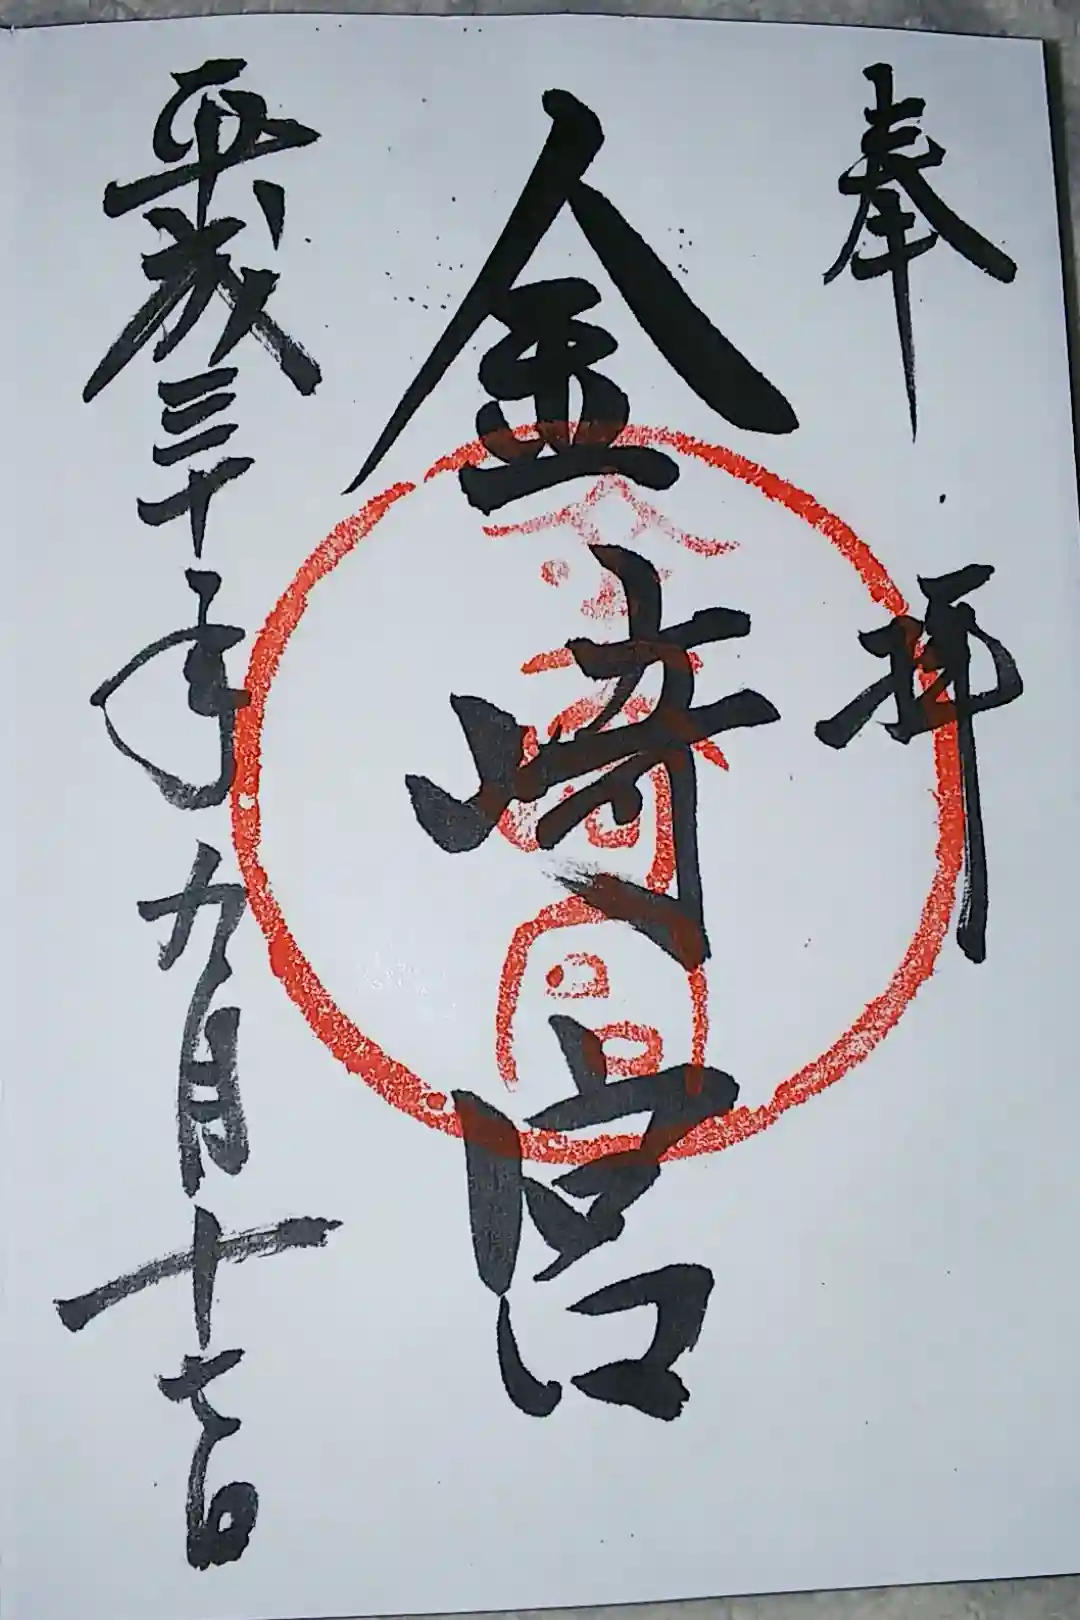 奉拝
金崎宮
平成三十年九月十七日